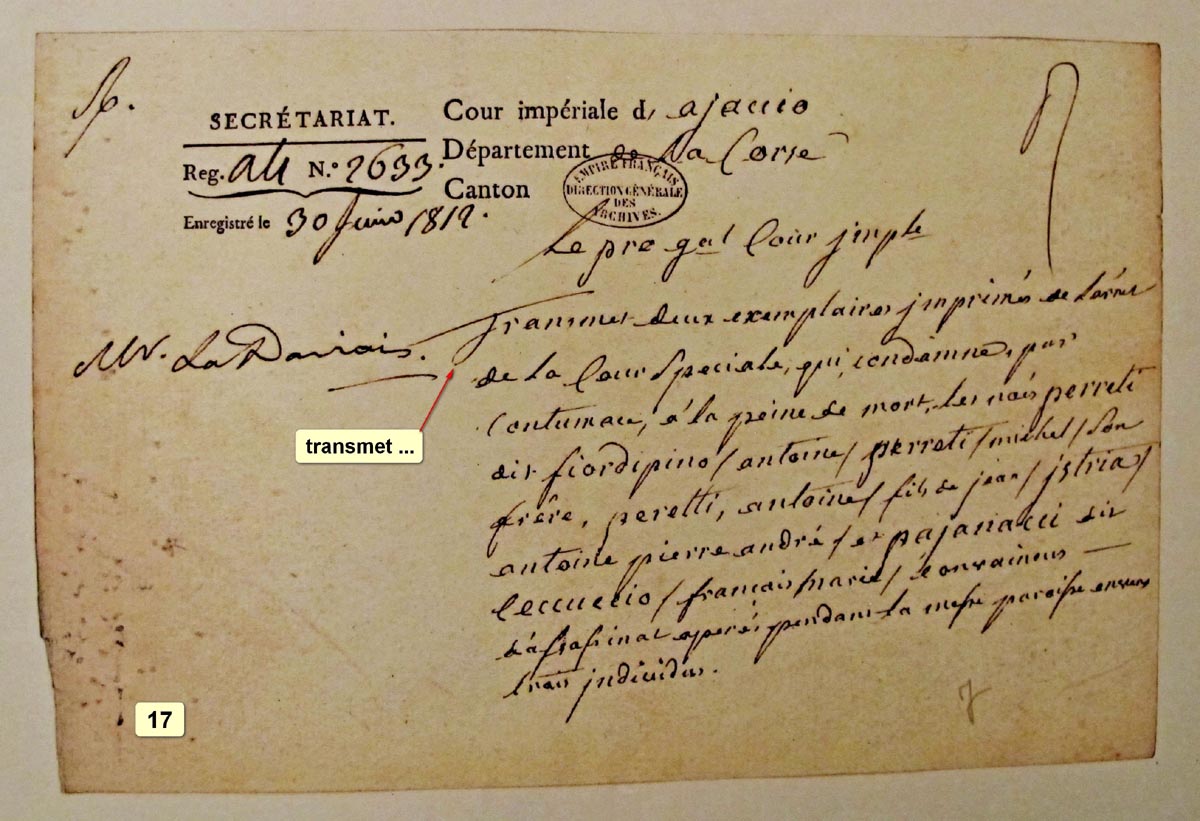 SECRÉTARIAT.
Reg. N.º 2633.
Enregistré le 30 Juin 1812.
Cour impériale d, ajaccio
Département de La Corse
Canton
EMPIRE FRANÇAIS
DIRECTION GÉNÉRALE
DES
ARCHIVES.
Le pro gal Cour jmple
Mr. LaDaviais.
Transmet deux exemplaires jmprimés de L'arret
de La Cour Speciale, qui condamne, par
Contumace, à la peine de mort, Les només perreti
dit fiordipino / antoine / perreti / michel / Son
frère, peretti, antoine / fils de jean / jstria /
antoine pierre andré / et pajanacci dit
Ceccuccio / francais marie / convaincus —
d'assassinat operés pendant La messe paroisse envers
trois jndividus.
transmet ...
17
7